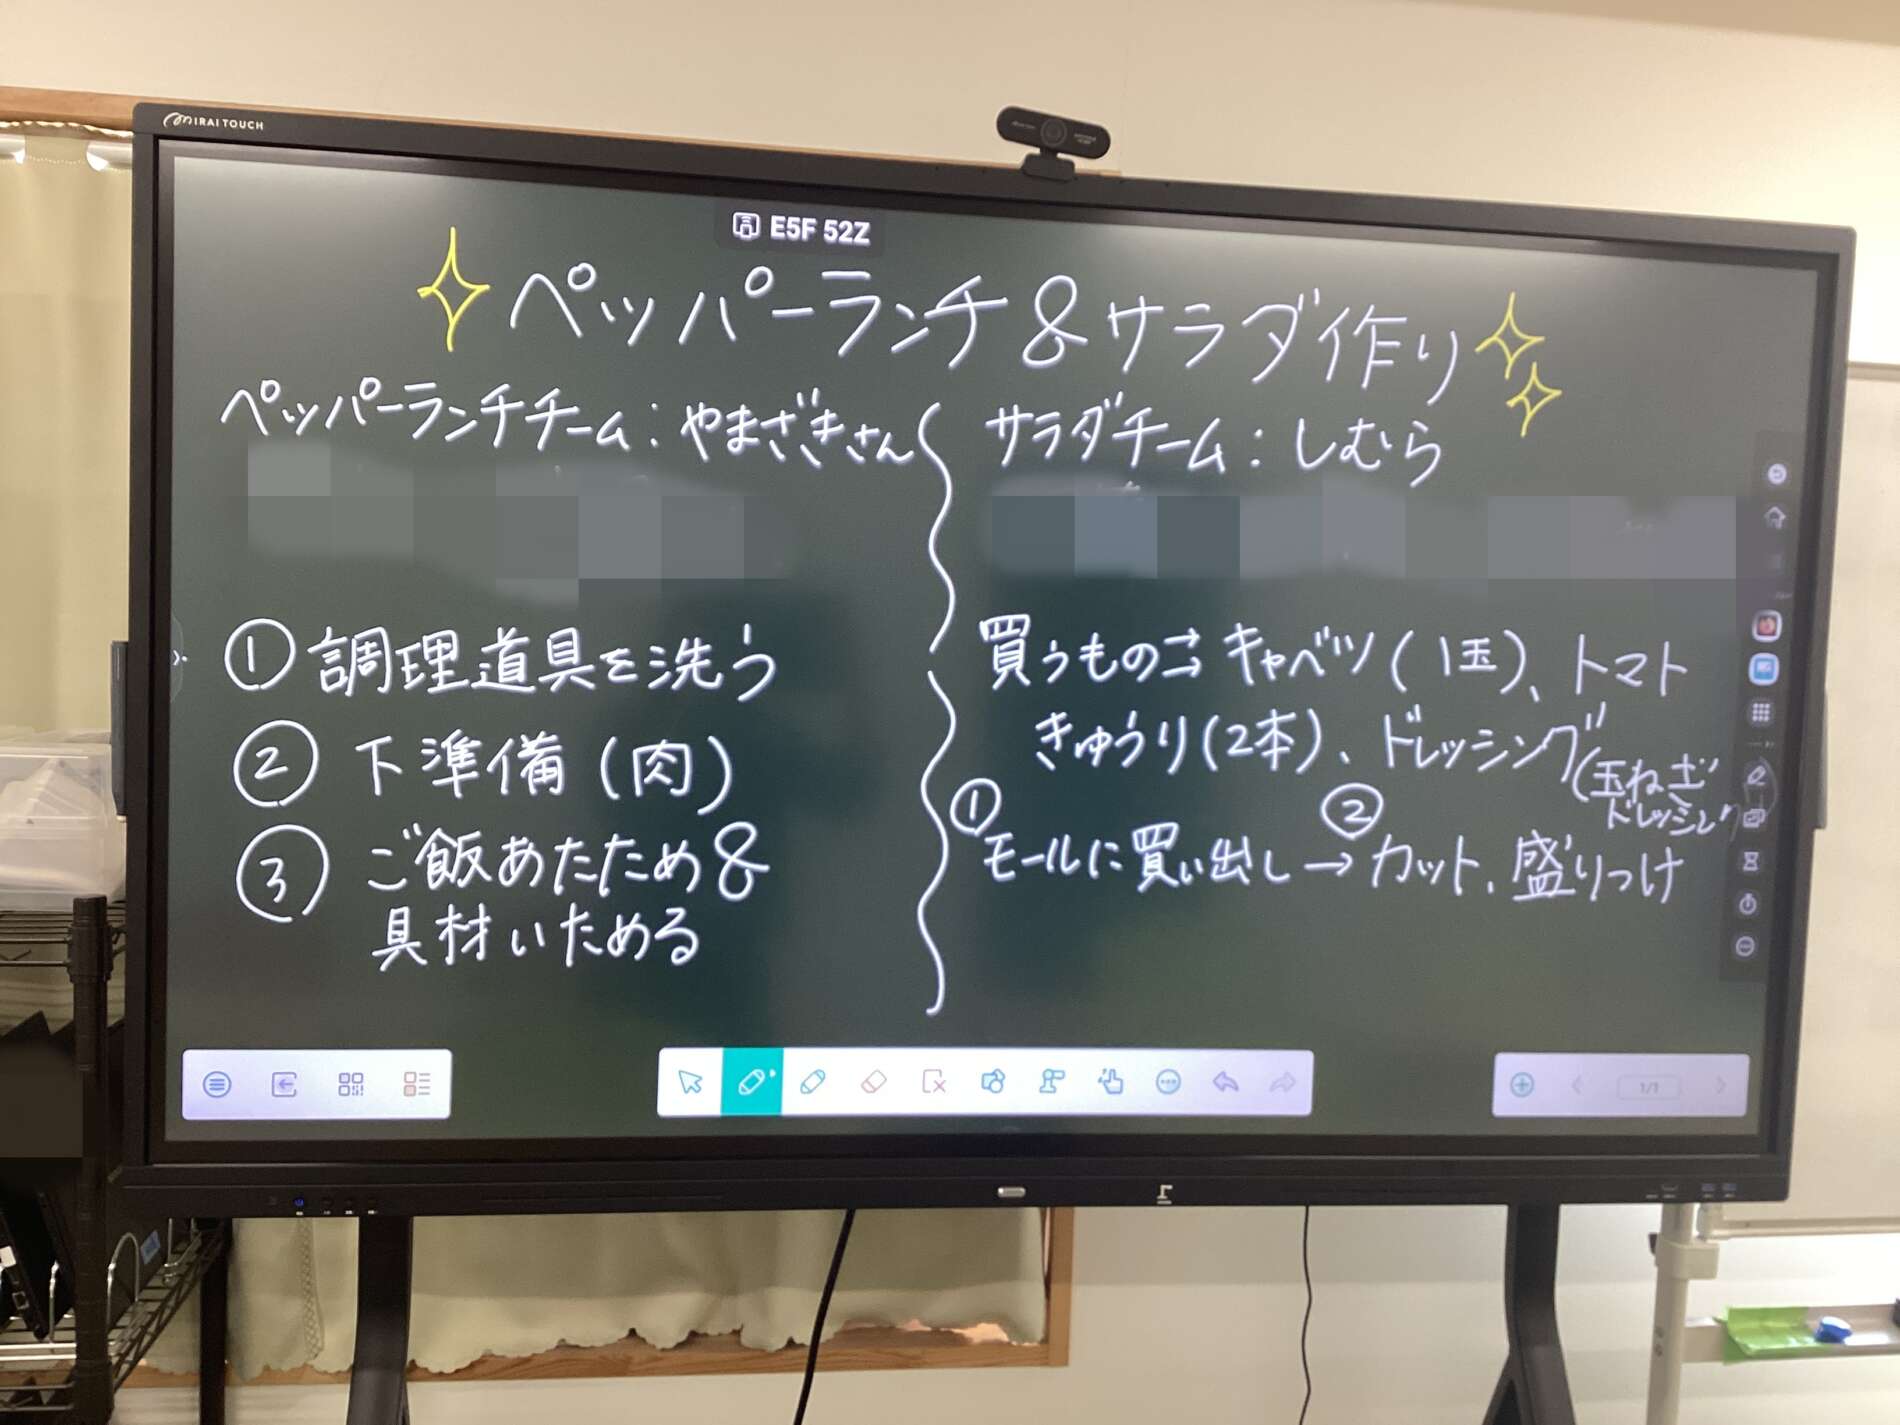 MIRAI TOUCH
E5F 52Z
ペッパーランチ&サラダ作り
ペッパーランチチーム:やまざきさん
① 調理道具を洗う
② 下準備(肉)
③ ご飯あたため&
具材いためる
サラダチーム:しむら
買うもの→キャベツ(1玉)、トマト
きゅうり(2本)、ドレッシング(玉ねぎ
ドレッシング
① モールに買い出し→② カット、盛りつけ
1/1